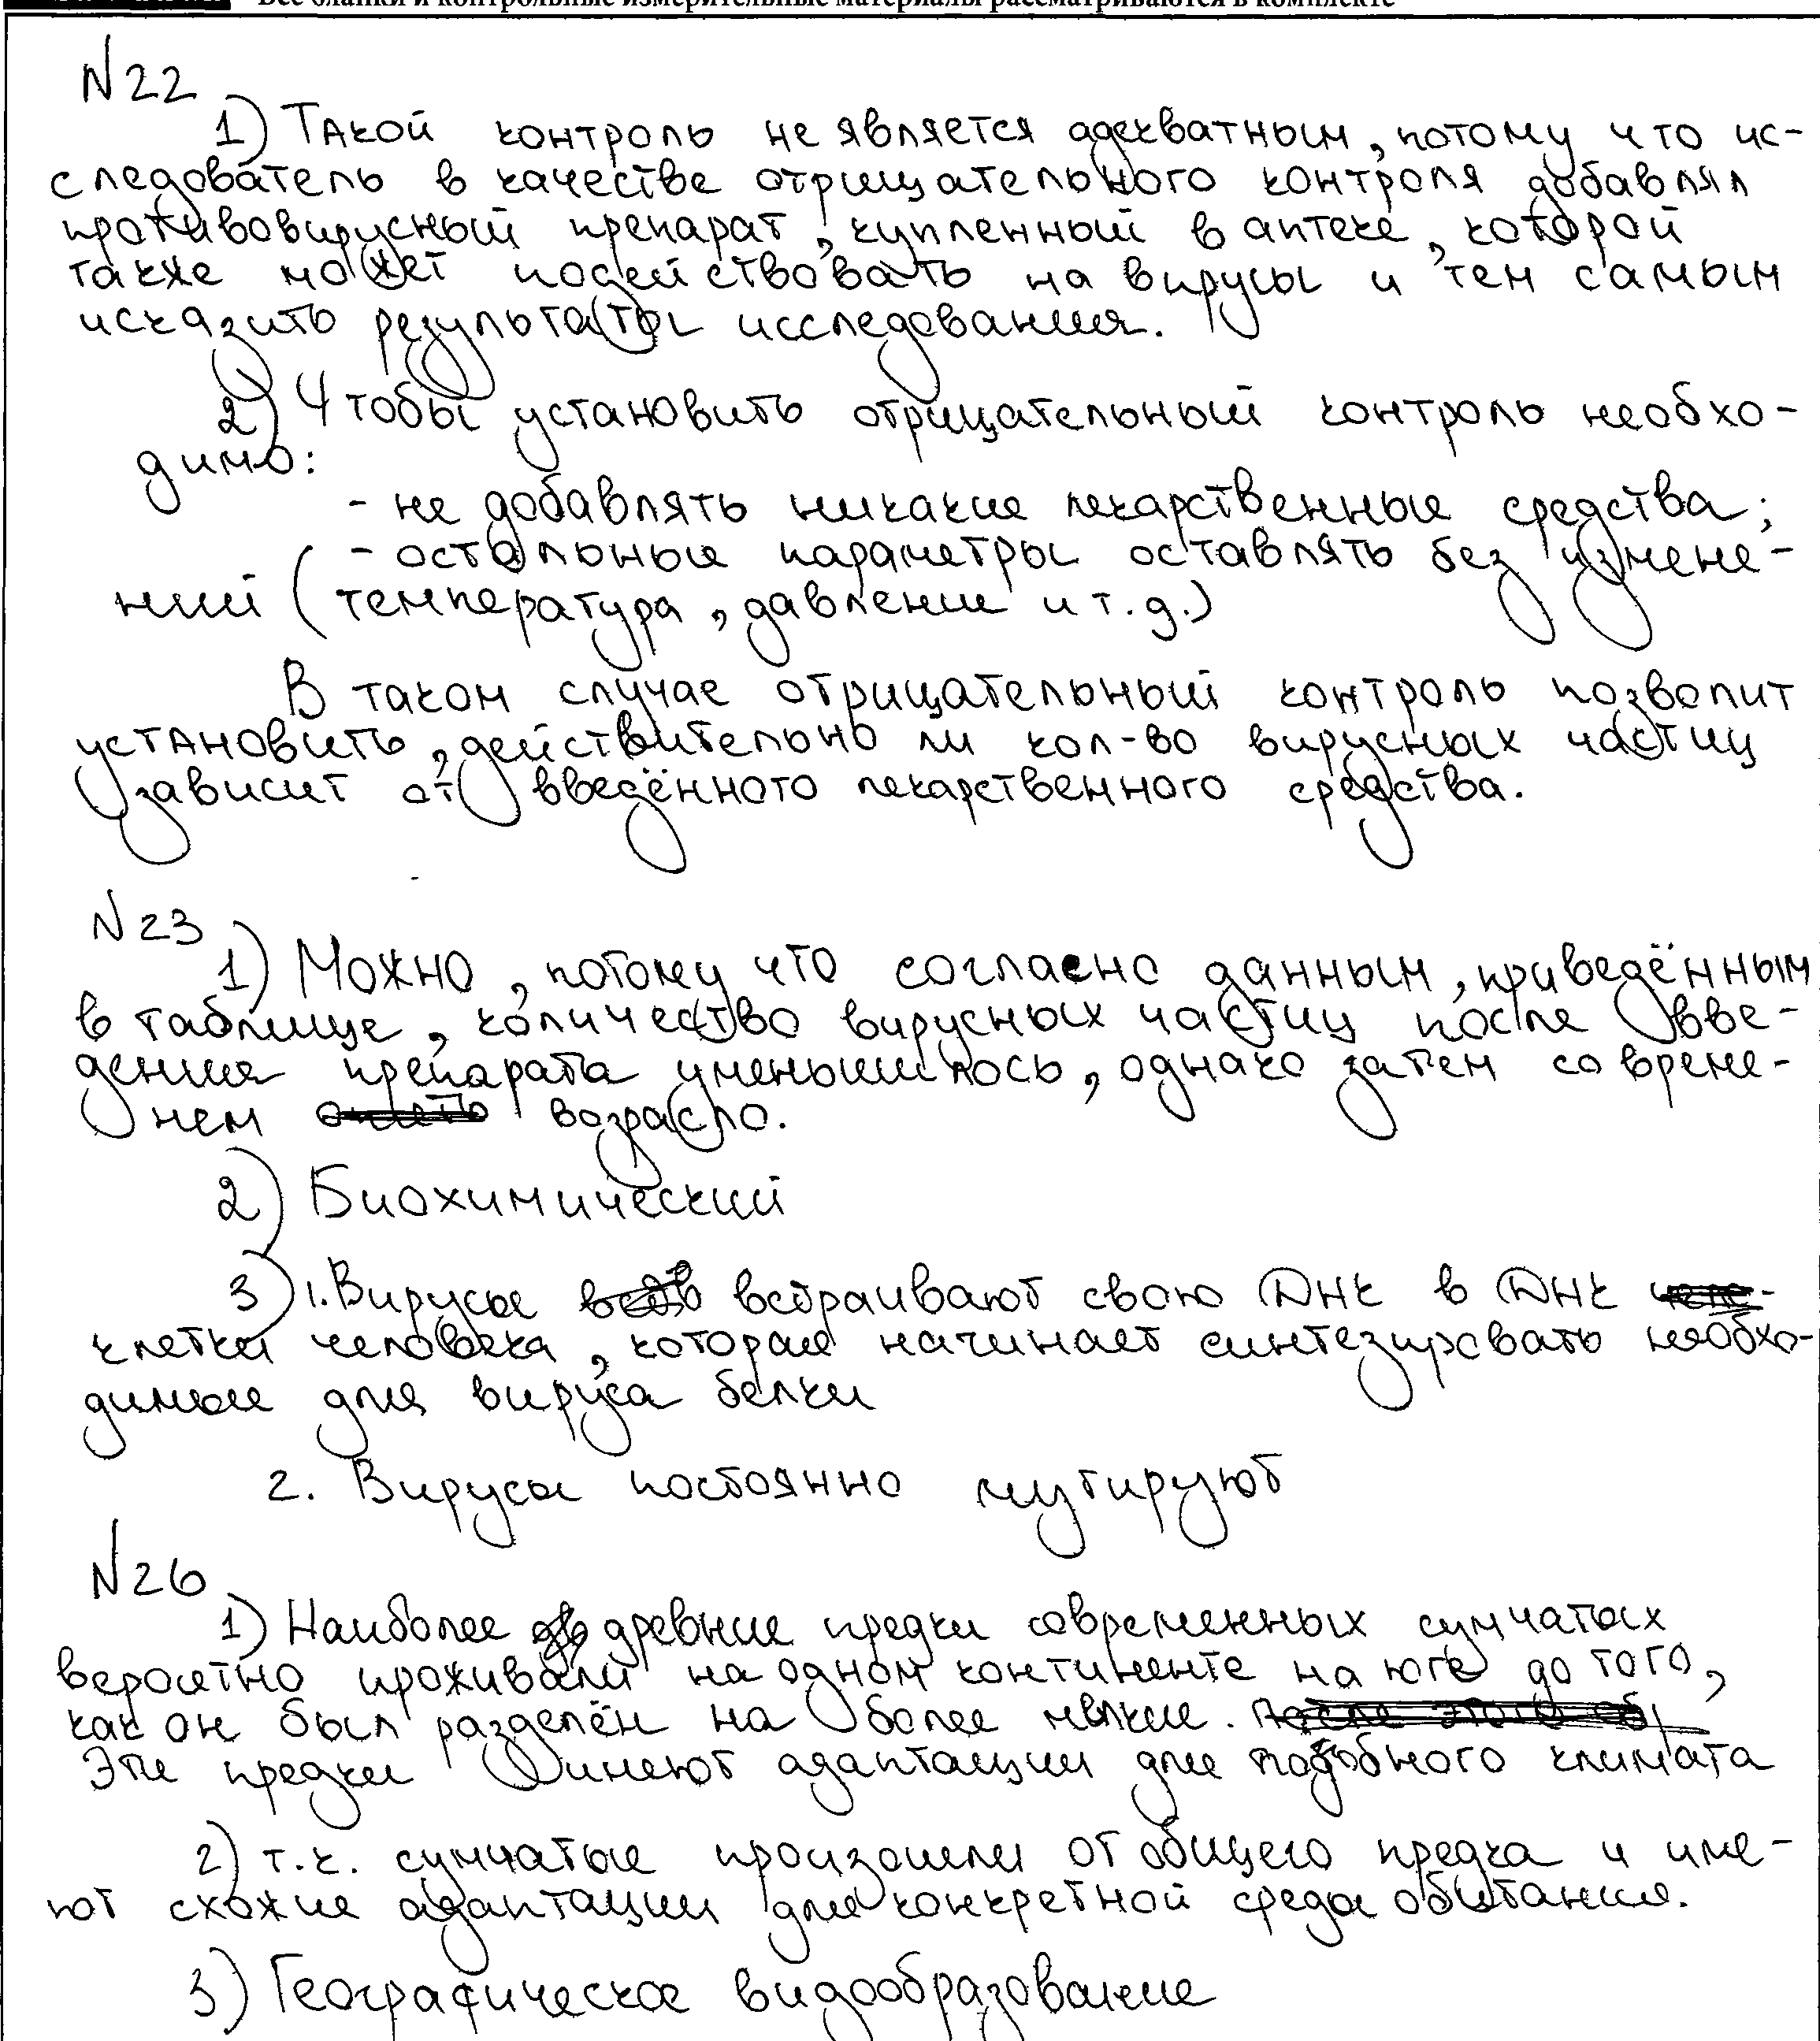 Все бланки и контрольные измерительные материалы рассматриваются в комплекте
N22
1) Такой контроль не является адекватным, потому что ис-
следователь в качестве отрицательного контроля добавлял
противовирусный препарат, купленный в аптеке, которой
также может подействовать на вирусы и тем самым
исказить результаты исследования.
2) Чтобы установить отрицательный контроль необхо-
димо:
- не добавлять никакие лекарственные средства;
- остальные параметры оставлять без измене-
ний (температура, давление и т.д.)
В таком случае отрицательный контроль позволит
установить, действительно ли кол-во вирусных частиц
зависит от введённого лекарственного средства.
N23
1) Можно, потому что согласно данным, приведённым
в таблице, количество вирусных частиц после вве-
дения препарата уменьшилось, однако затем со време-
нем возрасло.
2) Биохимический
3) 1. Вирусы встраивают свою ДНК в ДНК
клетки человека, которая начинает синтезировать необхо-
димые для вируса белки
2. Вирусы постоянно мутируют
N26
1) Наиболее древние предки современных сумчатых
вероятно проживали на одном континенте на юге до того,
как он был разделён на более мелкие.
Эти предки имеют адаптации для подобного климата
2) т.к. сумчатые произошли от общего предка и име-
ют схожие адаптации для конкретной среды обитания.
3) Географическое видообразование